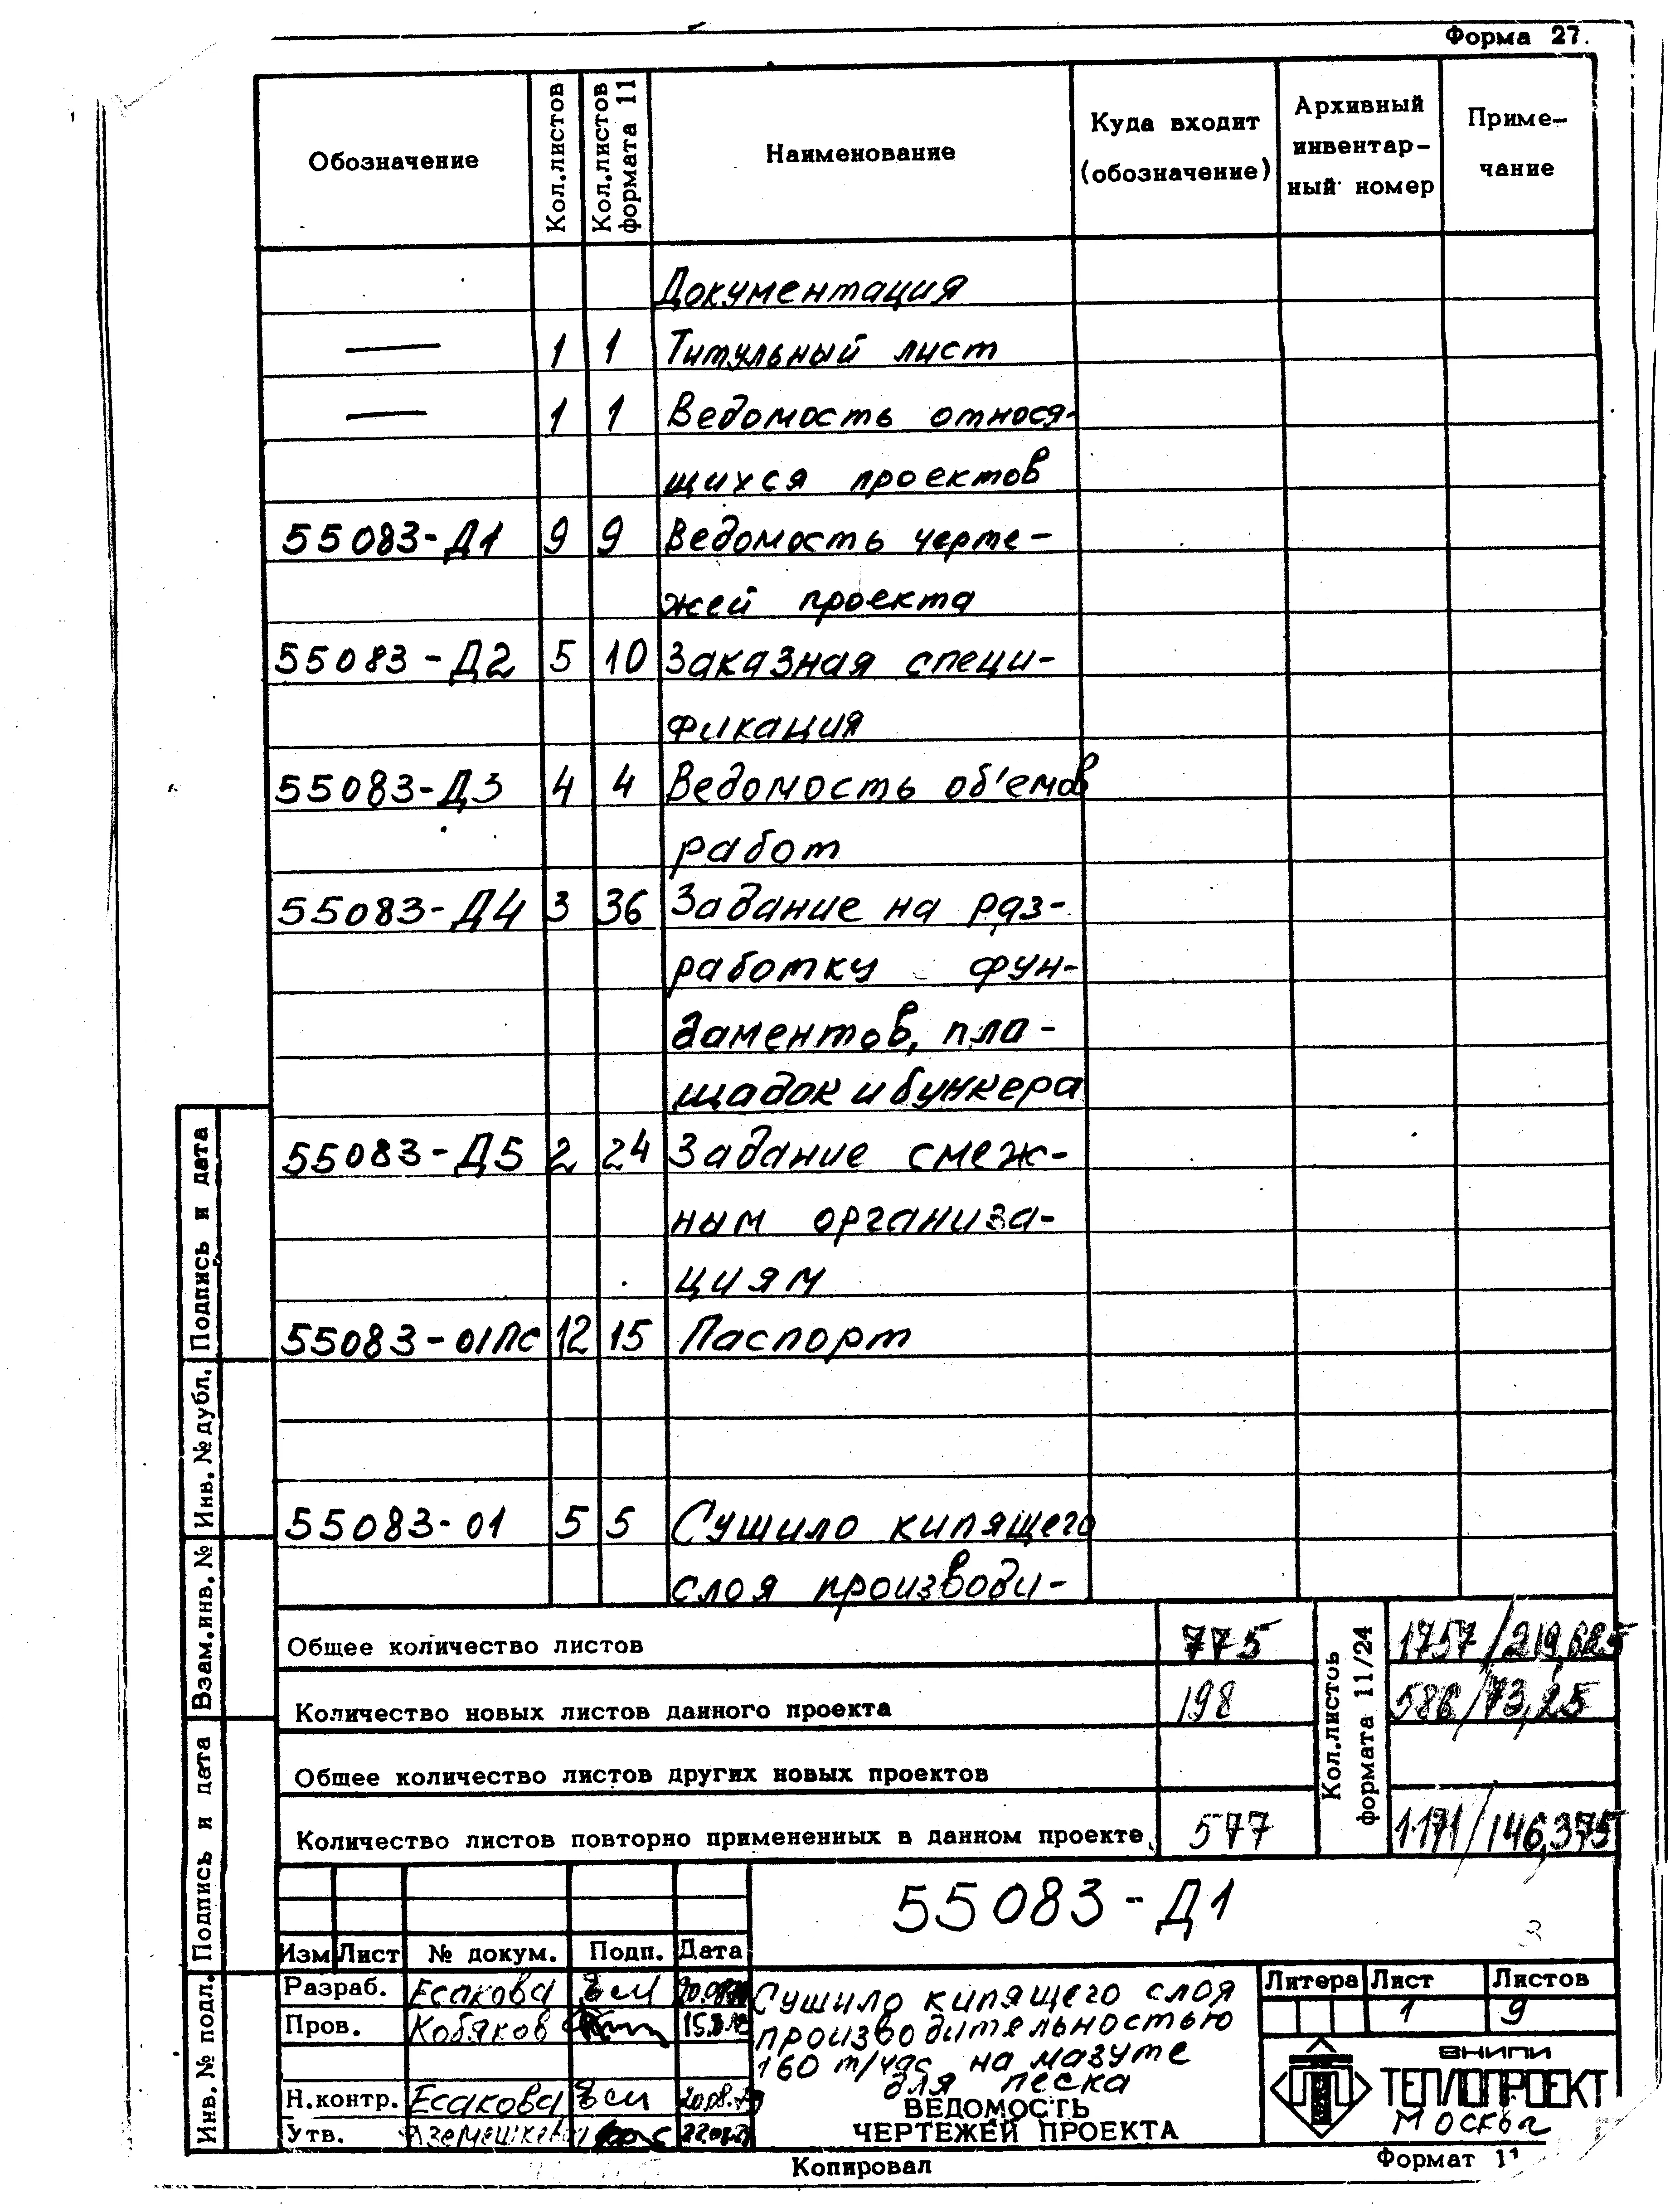 Форма 27.
Обозначение Кол.листов Кол.листов формата 11 Наименование Куда входит (обозначение) Архивный инвентар- ный номер Приме- чание
Документация
— 1 1 Титульный лист
— 1 1 Ведомость относя-
щихся проектов
55083-Д1 9 9 Ведомость черте-
жей проекта
55083-Д2 5 10 Заказная специ-
фикация
55083-Д3 4 4 Ведомость об'емов
работ
55083-Д4 3 36 Задание на раз-
работку фун-
даментов, пла-
щадок и бункера
55083-Д5 2 24 Задание смеж-
ным организа-
циям
55083-01ПС 12 15 Паспорт
55083-01 5 5 Сушило кипящего
слоя производи-
Общее количество листов 775 Кол.листов формата 11/24 1757/219,625
Количество новых листов данного проекта 198 586/73,25
Общее количество листов других новых проектов
Количество листов повторно примененных в данном проекте. 577 1171/146,375
55083-Д1
Изм Лист № докум. Подп. Дата
Разраб. Есакова
Пров. Кобяков
Н.контр. Есакова
Утв.
Сушило кипящего слоя
производительностью
160 т/час на мазуте
для песка
ВЕДОМОСТЬ
ЧЕРТЕЖЕЙ ПРОЕКТА
Литера Лист Листов
1 9
ВНИПИ
ТЕПЛОПРОЕКТ
Москва
Копировал
Формат 11
Подпись и дата
Инв.№ дубл.
Взам.инв.№
Подпись и дата
Инв.№ подл.